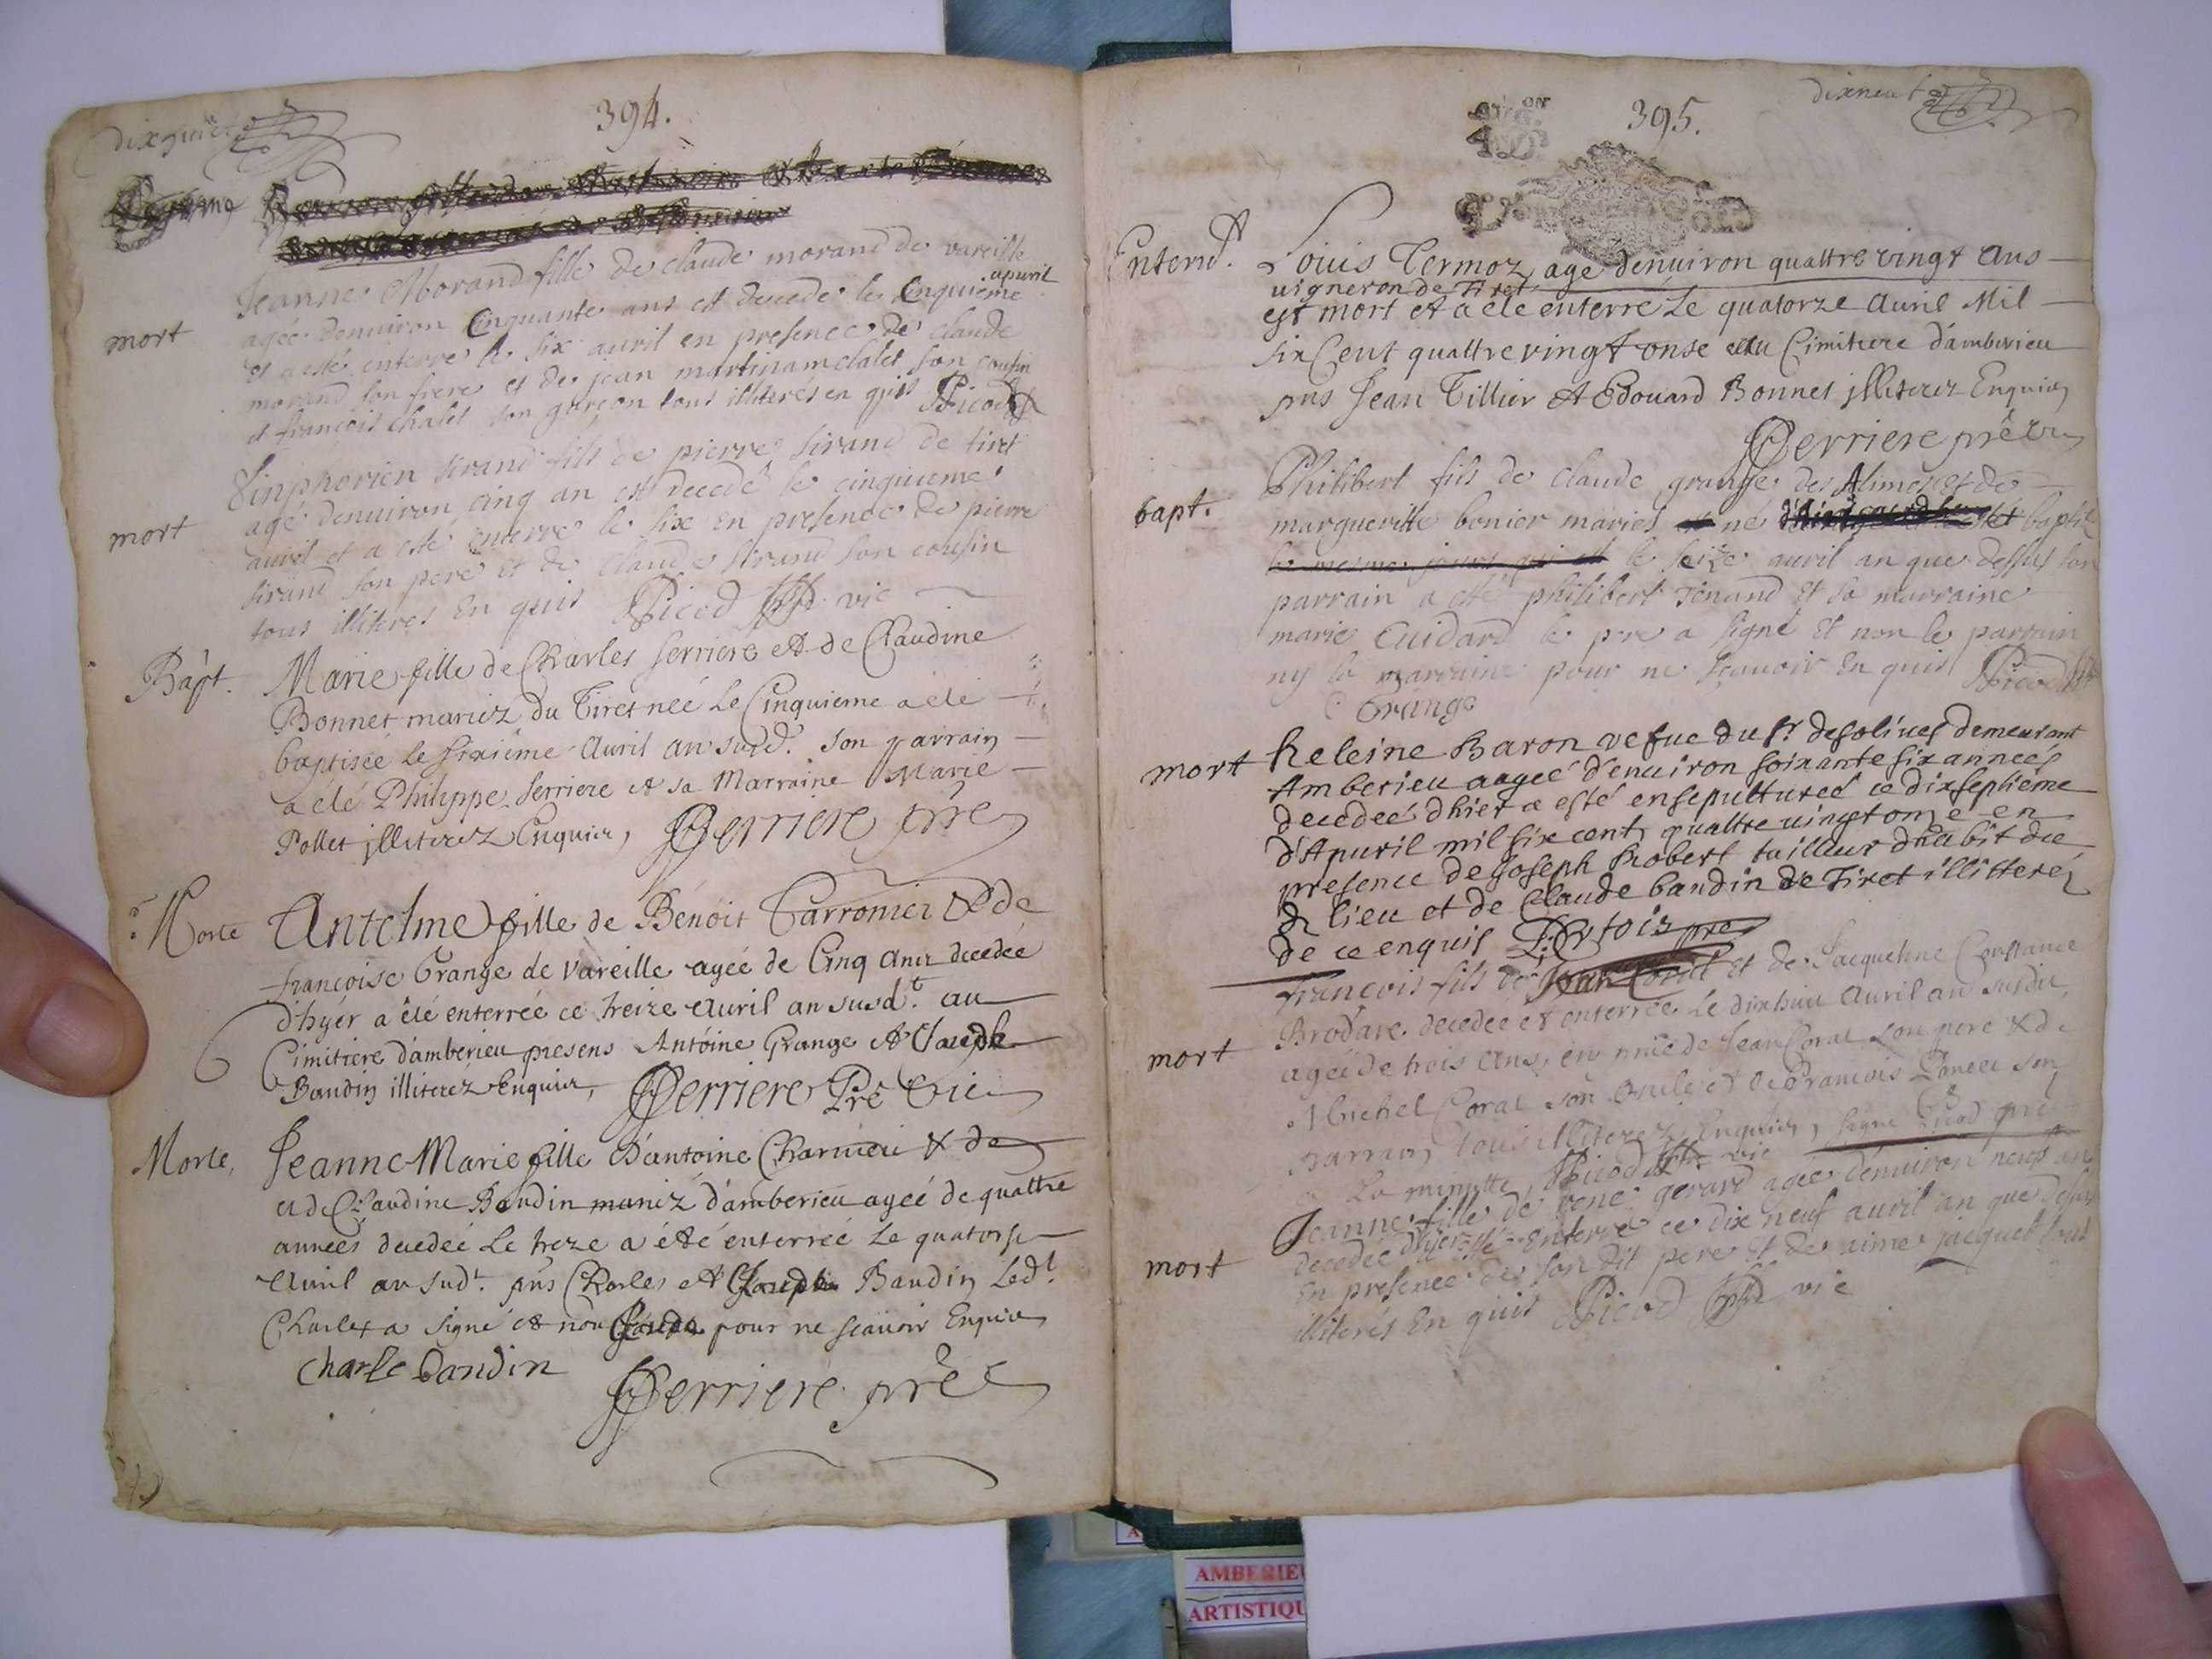 394.
Jeanne Morand fille de claude morand de vareille
mort
agée denuiron Cinquante ans est decede le Cinquieme apuril
et a esté enterre le six auril en presence de claude
morand son frere et de jean martinam chalet son cousin
et francois chalet son garçon tous illiterés en quis Picod
Simphorien sirand fils de pierre sirand de tiret
mort
agé denuiron cinq an est decedé le cinquieme
auril et a esté enterre le six en presence de pierre
sirand son pere et de claude sirand son cousin
tous illiteres En quis Picod vic
Bapt.
Marie fille de Charles serriere et de Claudine
Bonnet mariez du Tiret née Le Cinquieme a été
baptisée le sixiéme Auril an susd. son parrain
a été Philippe serriere et sa Marraine Marie
Pollet jlliterez Enquis, Perriere pre
Morte
Antelme fille de Bénoit Tarronier & de
françoise Grange de Vareille agée de Cinq Ans decedée
d'hyér a été enterrée ce treize Auril an susd.t au
Cimitiere d'amberieu presens Antóine Grange et Claude
Baudin illiteréz Enquis, Perriere Pre Vic
Morte,
Jeanne Marie fille D'antoine Charuieu & de
et de Claudine Baudin mariéz d'amberieu ageé de quattre
années decedeé Le treze a été énterreé Le quatorse
Auril an sudt. pns Charles et Claude Baudin Ledt.
Charles a signé et non Claude pour ne scauoir Enquis
Charle Baudin
Perriere pre
395.
dixneuf
Enterrt.
Louis Termoz, agé denuiron quattre vingt ans
uigneron de Tiret,
est mort et a eté enterré Le quatorze Auril Mil
six Cent quattre vingt onse au Cimitiere d'amberieu
pns Jean Tillier et Edouard Bonnet jlliterez Enquis
Perriere prêtre
bapt.
Philibert fils de Claude grange des Alimes et de
margueritte bonier mariés né et baptisé
le mesme jour qui est le seize auril an que dessus son
parrain a esté philibert Tenand et sa marraine
marie Cuidard le pere a signé et non le parrain
ny la marraine pour ne sçauoir En quis Picod
C Grange
mort
heleine Baron vefue du sr. desoliues demeurant
Amberieu aagée d'enuiron soixante six années
decedeé dhier a esté ensepultureé ce dixseptiéme
d'Apuril mil six cents quattre uingt onze en
presence de Joseph Robert tailleur dhabit du
d lieu et de Claude baudin de Tiret illitteréz
de ce enquis
mort
françois fils de Jean Coral et de Jacqueline Constance
Brodare decedee et enterrée Le dixhuit Auril an susdit,
agée de trois Ans, en pnce de Jean Coral son pere & de
Michel Coral son oncle et de francois son
parrain tous illiterez Enquis, signe Picod pre
a La minutte, Picod vic
mort
Jeanne fille de rené gerard agée denuiron neuf an
decedée dhier a esté Enterre ce dix neuf auril an que dessus
En presence de son dit pere et de aime jacquet tous
illiterés En quis Picod vic
AMBERIEU
ARTISTIQU